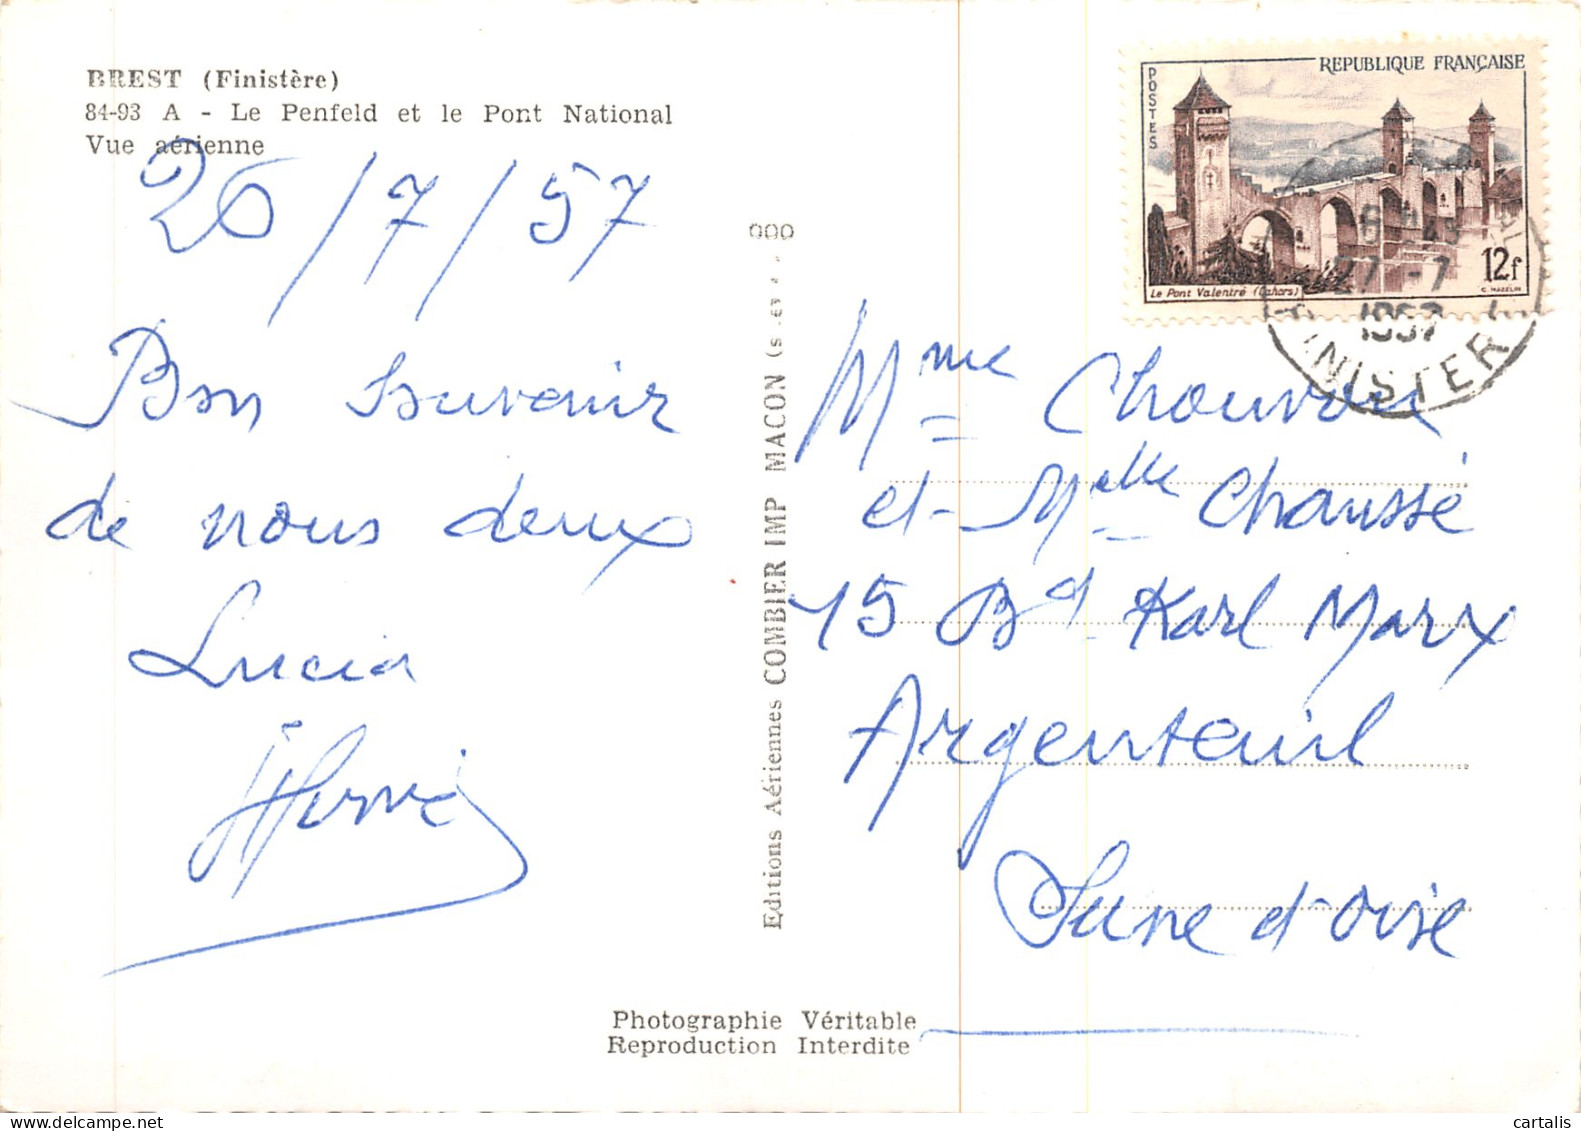 BREST (Finistère)
84-93 A - Le Penfeld et le Pont National
Vue aérienne
26/7/57
Bon souvenir
de nous deux
Lucia
Hervé
Editions Aériennes COMBIER IMP MACON
Photographie Véritable
Reproduction Interdite
REPUBLIQUE FRANÇAISE
POSTES
Le Pont Valentré (Cahors)
12f
C. HAZELIN
27 -7
1957
FINISTERE
Mme
et Melle Chaussé
15 Bd Karl Marx
Argenteuil
Seine et Oise
cartalis